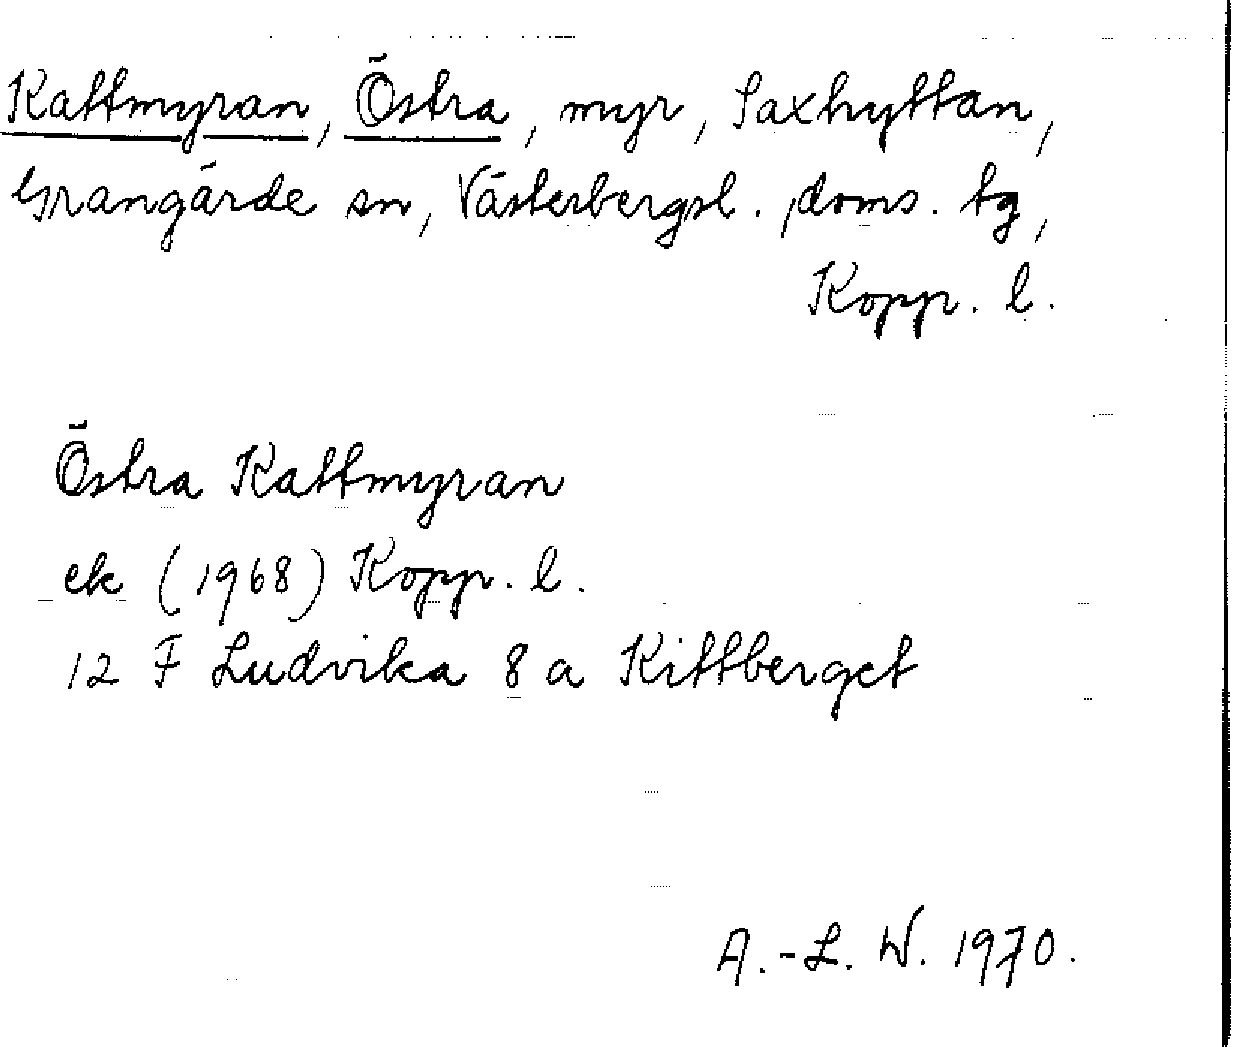 Kattmyran, Östra, myr, Saxhyttan,
Grangärde sn, Västerbergsl. doms. tg,
Kopp. l.
Östra Kattmyran
ek (1968) Kopp. l.
12 F Ludvika 8 a Kittberget
A.-L. W. 1970.